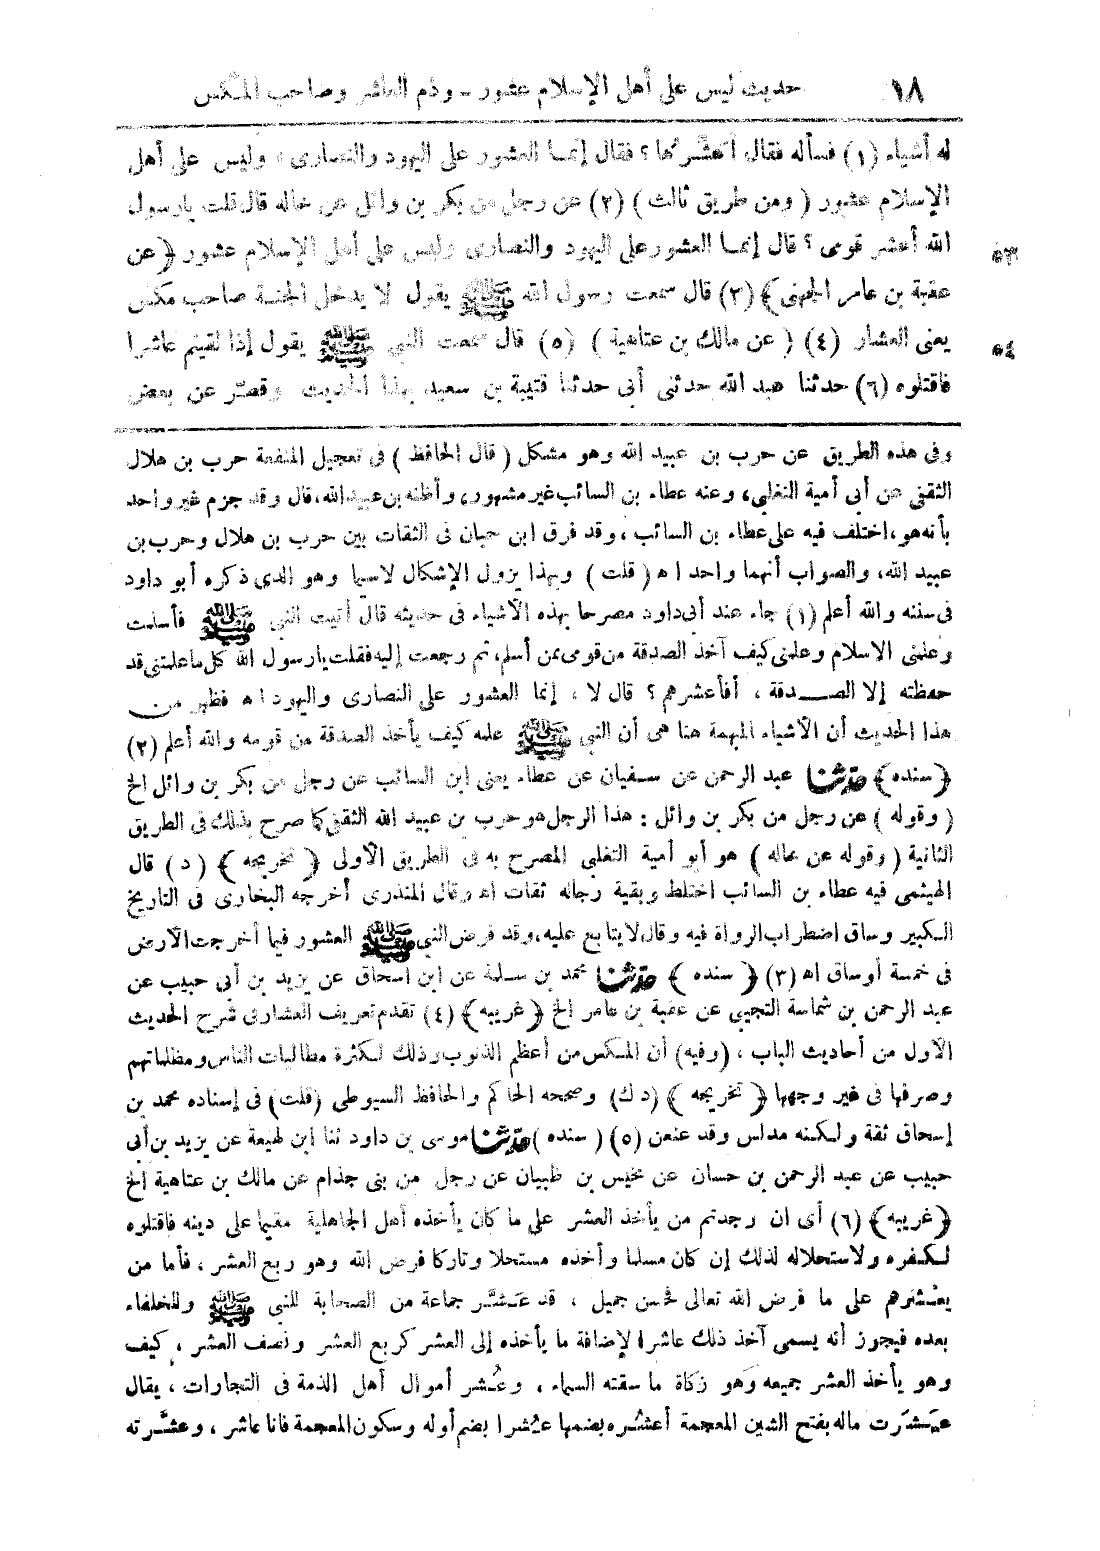 ١٨ حديث ليس على أهل الإسلام عشور - وذم العاشر وصاحب المكس
له أشياء (١) فسأله فقال أعشرها؟ فقال إنما العشور على اليهود والنصارى، وليس على أهل
الإسلام عشور (ومن طريق ثالث) (٢) عن رجل من بكر بن وائل عن خاله قال قلت يا رسول
الله أعشر قومى؟ قال إنما العشور على اليهود والنصارى وليس على أهل الإسلام عشور ﴿عن ٥٣
عقبة بن عامر الجهنى﴾ (٣) قال سمعت رسول الله ﷺ يقول لا يدخل الجنة صاحب مكس
يعنى العشار (٤) (عن مالك بن عتاهية) (٥) قال سمعت النبي ﷺ يقول إذا لقيتم عاشرا ٥٤
فاقتلوه (٦) حدثنا عبد الله حدثنى أبى حدثنا قتيبة بن سعيد بهذا الحديث وقصّر عن بعض
وفى هذه الطريق عن حرب بن عبيد الله وهو مشكل (قال الحافظ) فى تعجيل المنفعة حرب بن هلال
الثقفى عن أبى أمية التغلبى، وعنه عطاء بن السائب غير مشهور، وأظنه بن عبيد الله، قال وقد جزم غير واحد
بأنه هو، اختلف فيه على عطاء بن السائب، وقد فرق ابن حبان فى الثقات بين حرب بن هلال وحرب بن
عبيد الله، والصواب أنهما واحد اه (قلت) وبهذا يزول الإشكال لاسيما وهو الذى ذكره أبو داود
فى سننه والله أعلم (١) جاء عند أبى داود مصرحا بهذه الأشياء فى حديثه قال أتيت النبي ﷺ فأسلمت
وعلمنى الاسلام وعلمنى كيف آخذ الصدقة من قومى ممن أسلم، ثم رجعت إليه فقلت يا رسول الله كل ما علمتنى قد
حفظته إلا الصدقة، أفأعشرهم؟ قال لا، إنما العشور على النصارى واليهود اه فظهر من
هذا الحديث أن الأشياء المبهمة هنا هى أن النبي ﷺ علمه كيف يأخذ الصدقة من قومه والله أعلم (٢)
﴿سنده﴾ حدّثنا عبد الرحمن عن سفيان عن عطاء يعنى ابن السائب عن رجل من بكر بن وائل الخ
(وقوله) عن رجل من بكر بن وائل: هذا الرجل هو حرب بن عبيد الله الثقفى كما صرح بذلك فى الطريق
الثانية (وقوله عن خاله) هو أبو أمية التغلبى المصرح به فى الطريق الأولى ﴿تخريجه﴾ (د) قال
الهيثمى فيه عطاء بن السائب اختلط وبقية رجاله ثقات اه وقال المنذرى أخرجه البخارى فى التاريخ
الكبير وساق اضطراب الرواة فيه وقال لا يتابع عليه، وقد فرض النبي ﷺ العشور فيما أخرجت الأرض
فى خمسة أوساق اه (٣) ﴿سنده﴾ حدّثنا محمد بن سلمة عن ابن اسحاق عن يزيد بن أبى حبيب عن
عبد الرحمن بن شماسة التجيبى عن عقبة بن عامر الخ ﴿غريبه﴾ (٤) تقدم تعريف العشار فى شرح الحديث
الأول من أحاديث الباب، (وفيه) أن المكس من أعظم الذنوب وذلك لكثرة مطالبات الناس ومظلماتهم
وصرفها فى غير وجهها ﴿تخريجه﴾ (د ك) وصححه الحاكم والحافظ السيوطى (قلت) فى إسناده محمد بن
إسحاق ثقة ولكنه مدلس وقد عنعن (٥) (سنده) حدّثنا موسى بن داود ثنا ابن لهيعة عن يزيد بن أبى
حبيب عن عبد الرحمن بن حسان عن مخيس بن ظبيان عن رجل من بنى جذام عن مالك بن عتاهية الخ
﴿غريبه﴾ (٦) أى ان وجدتم من يأخذ العشر على ما كان يأخذه أهل الجاهلية مقيما على دينه فاقتلوه
لكفره ولاستحلاله لذلك إن كان مسلما وأخذه مستحلا وتاركا فرض الله وهو ربع العشر، فأما من
يعشرهم على ما فرض الله تعالى فحسن جميل، قد عَشَّر جماعة من الصحابة للنبي ﷺ وللخلفاء
بعده فيجوز أنه يسمى آخذ ذلك عاشرا لإضافة ما يأخذه إلى العشر كربع العشر ونصف العشر، كيف
وهو يأخذ العشر جميعه وهو زكاة ما سقته السماء، وعُشر أموال أهل الذمة فى التجارات، يقال
عَشَرت ماله بفتح الشين المعجمة أعشُره بضمها عُشرا بضم أوله وسكون المعجمة فانا عاشر، وعشَّرته